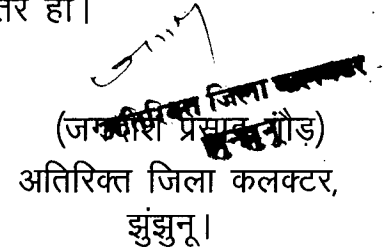 हो।
अतिरिक्त जिला कलक्टर
झुन्झुनूं
(जगदीश प्रसाद गौड़)
अतिरिक्त जिला कलक्टर,
झुंझुनू।